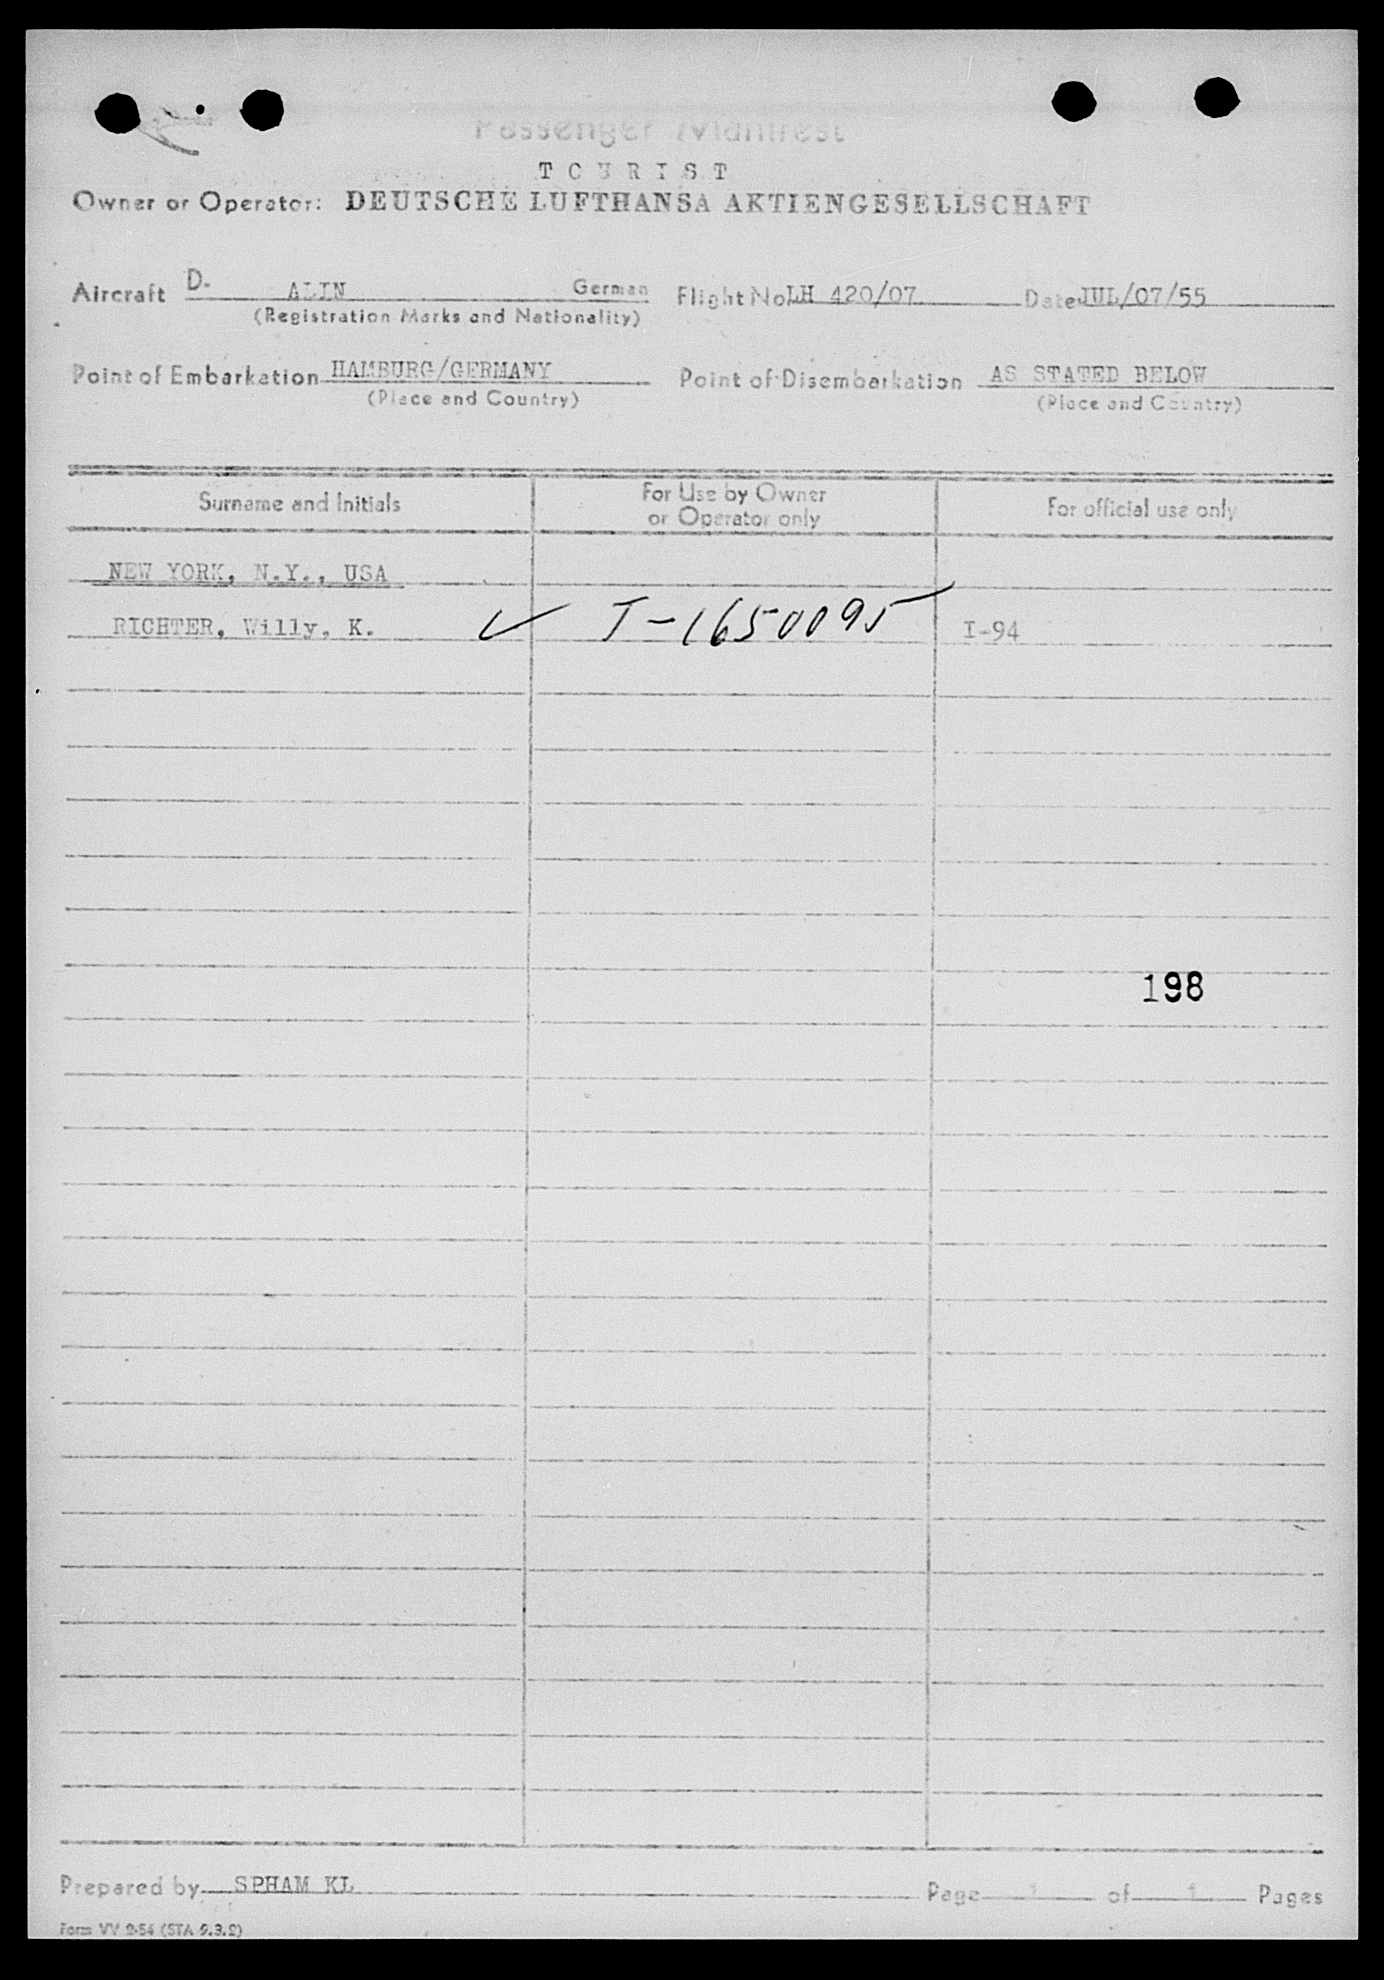 Passenger Manifest
TOURIST
Owner or Operator: DEUTSCHE LUFTHANSA AKTIENGESELLSCHAFT
Aircraft D- ALIN German Flight No LH 420/07 Date JUL/07/55
(Registration Marks and Nationality)
Point of Embarkation HAMBURG/GERMANY Point of Disembarkation AS STATED BELOW
(Place and Country) (Place and Country)
Surname and Initials For Use by Owner or Operator only For official use only
NEW YORK, N.Y., USA
RICHTER, Willy, K. ✓ T-1650095 I-94
198
Prepared by SPHAM KL Page 1 of 1 Pages
Form VV 2-54 (STA 9.3.2)